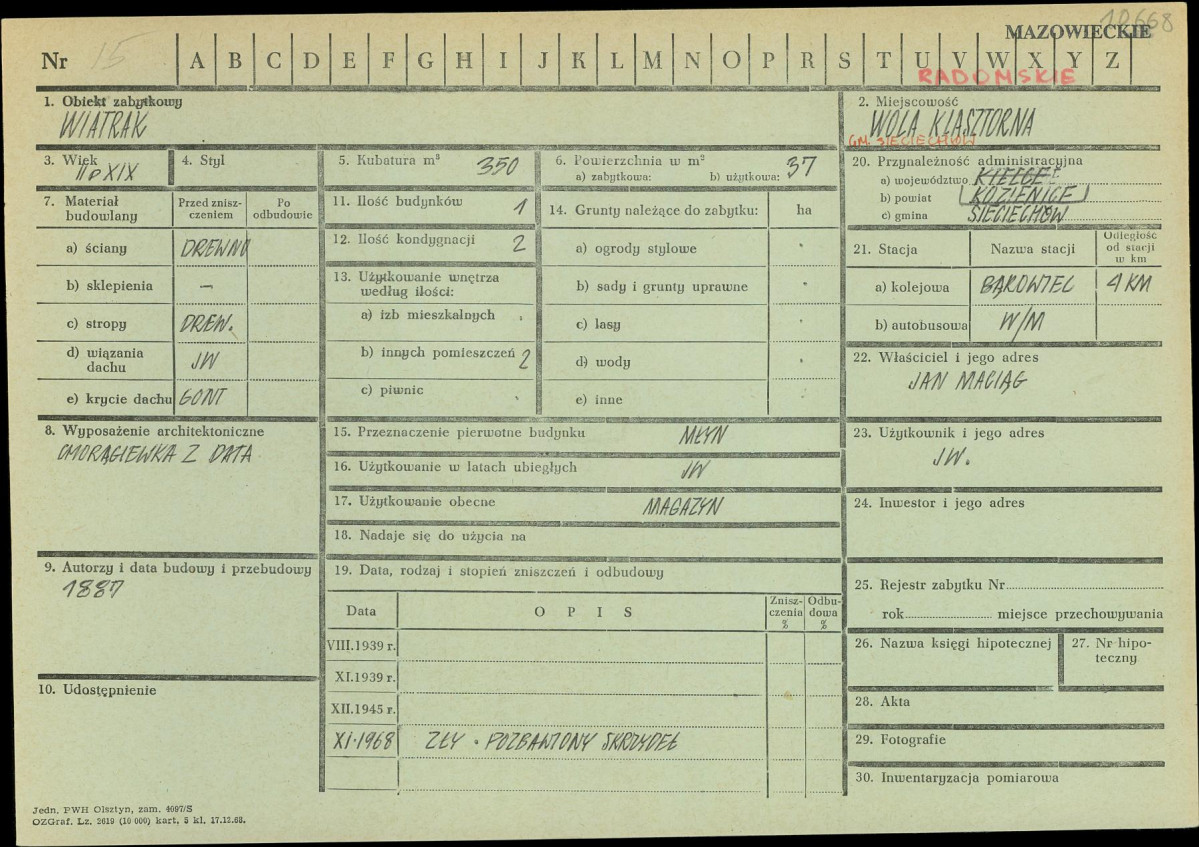 10668
MAZOWIECKIE
Nr 15 A B C D E F G H I J K L M N O P R S T U V W X Y Z
RADOMSKIE
1. Obiekt zabytkowy
WIATRAK
2. Miejscowość
WOLA KLASZTORNA
GM. SIECIECHÓW
3. Wiek
II p XIX
4. Styl
5. Kubatura m³ 350
6. Powierzchnia w m² 37
a) zabytkowa: b) użytkowa:
20. Przynależność administracyjna
a) województwo KIELCE
b) powiat KOZIENICE
c) gmina SIECIECHÓW
7. Materiał budowlany
Przed zniszczeniem
Po odbudowie
a) ściany DREWNO
b) sklepienia —
c) stropy DREW.
d) wiązania dachu JW
e) krycie dachu GONT
11. Ilość budynków 1
12. Ilość kondygnacji 2
13. Użytkowanie wnętrza
według ilości:
a) izb mieszkalnych
b) innych pomieszczeń 2
c) piwnic
14. Grunty należące do zabytku: ha
a) ogrody stylowe
b) sady i grunty uprawne
c) lasy
d) wody
e) inne
21. Stacja
Nazwa stacji
Odległość od stacji w km
a) kolejowa BĄKOWIEC 4 KM
b) autobusowa W/M
22. Właściciel i jego adres
JAN MACIĄG
8. Wyposażenie architektoniczne
CHORĄGIEWKA Z DATĄ
15. Przeznaczenie pierwotne budynku MŁYN
16. Użytkowanie w latach ubiegłych JW
17. Użytkowanie obecne MAGAZYN
18. Nadaje się do użycia na
23. Użytkownik i jego adres
JW.
24. Inwestor i jego adres
9. Autorzy i data budowy i przebudowy
1887
10. Udostępnienie
19. Data, rodzaj i stopień zniszczeń i odbudowy
Data
O P I S
Zniszczenia %
Odbudowa %
VIII.1939 r.
XI.1939 r.
XII.1945 r.
XI.1968 ZŁY. POZBAWIONY SKRZYDEŁ
25. Rejestr zabytku Nr
rok miejsce przechowywania
26. Nazwa księgi hipotecznej
27. Nr hipoteczny
28. Akta
29. Fotografie
30. Inwentaryzacja pomiarowa
Jedn. PWH Olsztyn, zam. 4097/S
OZGraf. Lz. 2619 (10 000) kart, 5 kl. 17.12.68.